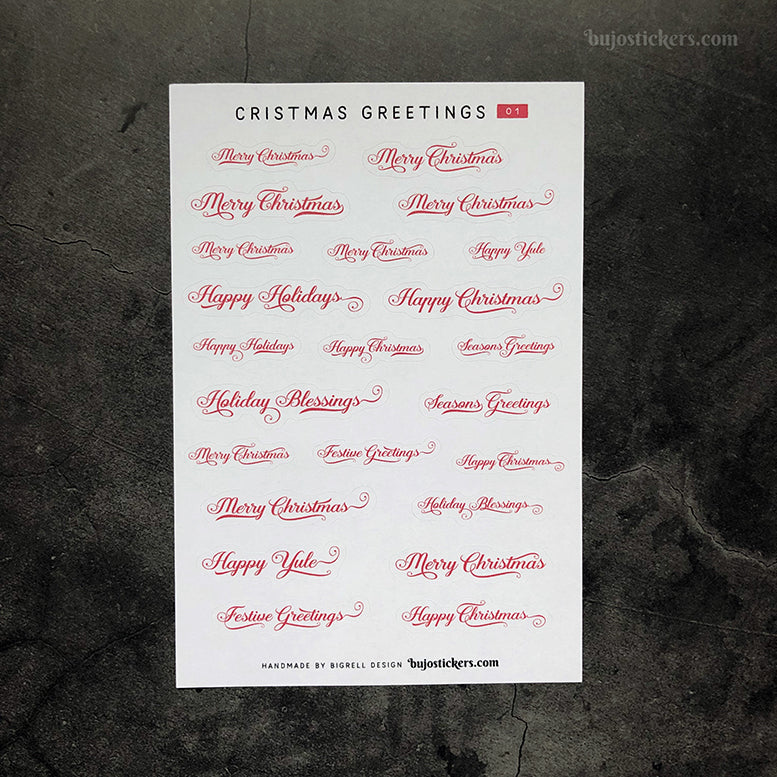 bujostickers.com
CRISTMAS GREETINGS 01
Merry Christmas Merry Christmas
Merry Christmas Merry Christmas
Merry Christmas Merry Christmas Happy Yule
Happy Holidays Happy Christmas
Happy Holidays Happy Christmas Seasons Greetings
Holiday Blessings Seasons Greetings
Merry Christmas Festive Greetings Happy Christmas
Merry Christmas Holiday Blessings
Happy Yule Merry Christmas
Festive Greetings Happy Christmas
HANDMADE BY BIGRELL DESIGN bujostickers.com